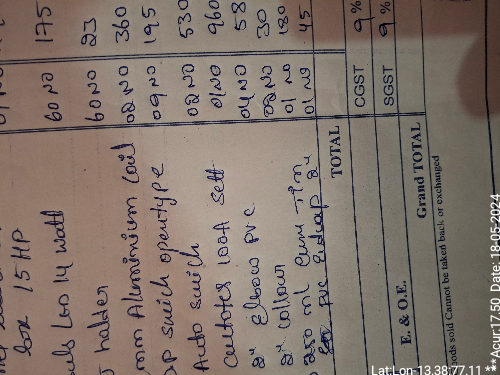 box 15 HP
Led 14 watt 60 NO 175
holder 60 NO 23
mm Aluminium coil 02 NO 360
swich opentype 09 NO 195
Auto swich 02 NO 530
100A sett 01 NO 960
2" Elbow PVC 04 NO 58
2" collour 02 NO 30
250 ml Tin 01 NO 180
PVC Endcap 2" 01 NO 45
TOTAL
CGST 9%
SGST 9%
E. & O.E. Grand TOTAL
oods sold Cannot be taken back or exchanged
Lat:Lon-13.38:77.11 ***Acur17.50 Date: 18-05-2024